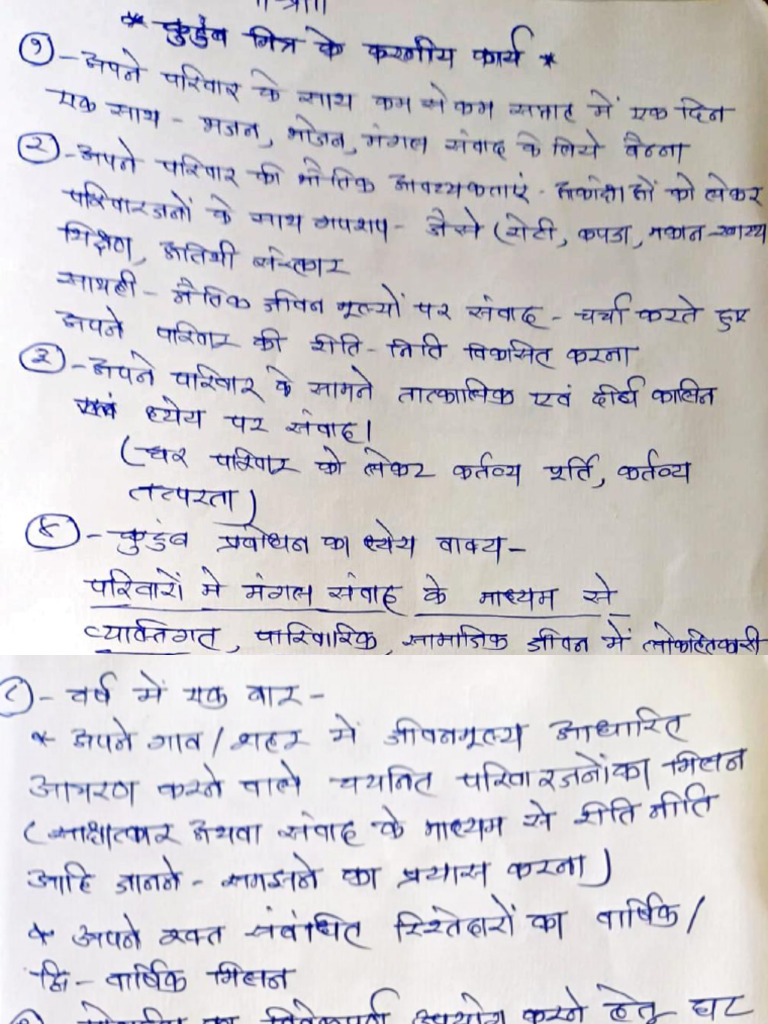 * कुटुंब मित्र के करणीय कार्य *
१ - अपने परिवार के साथ कम से कम सप्ताह में एक दिन
एक साथ - भजन, भोजन, मंगल संवाद के लिये बैठना
२ - अपने परिवार की भौतिक आवश्यकताएं - आकांक्षाओं को लेकर
परिवारजनों के साथ गपशप - जैसे (रोटी, कपडा, मकान
शिक्षण, अतिथी संस्कार
साथही - नैतिक जीवन मूल्यों पर संवाद - चर्चा करते हुए
अपने परिवार की रीति - निति विकसित करना
३ - अपने परिवार के सामने तात्कालिक एवं दीर्घ कालिन
ध्येय पर संवाद।
(घर परिवार को लेकर कर्तव्य पूर्ति, कर्तव्य
तत्परता)
४ - कुटुंब प्रबोधन का ध्येय वाक्य -
परिवारों मे मंगल संवाद के माध्यम से
व्यक्तिगत, पारिवारिक, सामाजिक जीवन में लोकहितकारी
- वर्ष में एक बार -
* अपने गाव / शहर में जीवनमूल्य आधारित
आचरण करने वाले चयनित परिवारजनोंका मिलन
(साक्षात्कार अथवा संवाद के माध्यम से रीति नीति
आदि जानने - समझने का प्रयास करना)
* अपने रक्त संबंधित रिश्तेदारों का वार्षिक /
द्वि - वार्षिक मिलन
का उपयोग करने हेतू घट